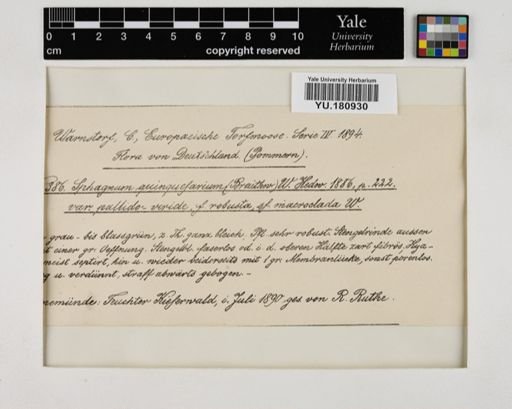 0 1 2 3 4 5 6 7 8 9 10
cm
copyright reserved
Yale
University
Herbarium
Yale University Herbarium
YU.180930
Warnstorf, C., Europaeische Torfmoose. Serie III. 1894.
Flora von Deutschland (Pommern).
386. Sphagnum quinquefarium (Braithw) W. Hedw. 1886, p. 222.
var. pallido-viride, f. robusta, sf. macroclada W.
grau- bis blassgrün, z. Th. ganz bleich. Pfl. sehr robust. Stengelrinde aussen
t einer gr. Oeffnung. Stengelbl. faserlos od. i. d. oberen Hälfte zart fibrös. Hya-
meist septirt, hin u. wieder beiderseits mit 1 gr. Membranlücke, sonst porenlos.
g u. verdünnt, straff abwärts gebogen.-
nemünde: Feuchter Kieferwald, i. Juli 1890 ges. von R. Ruthe.